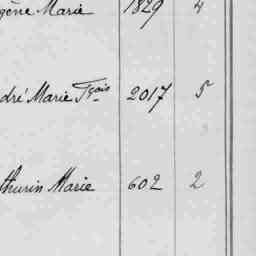 gène Marie 1829 4
dré Marie Fçois 2017 5
thurin Marie 602 2